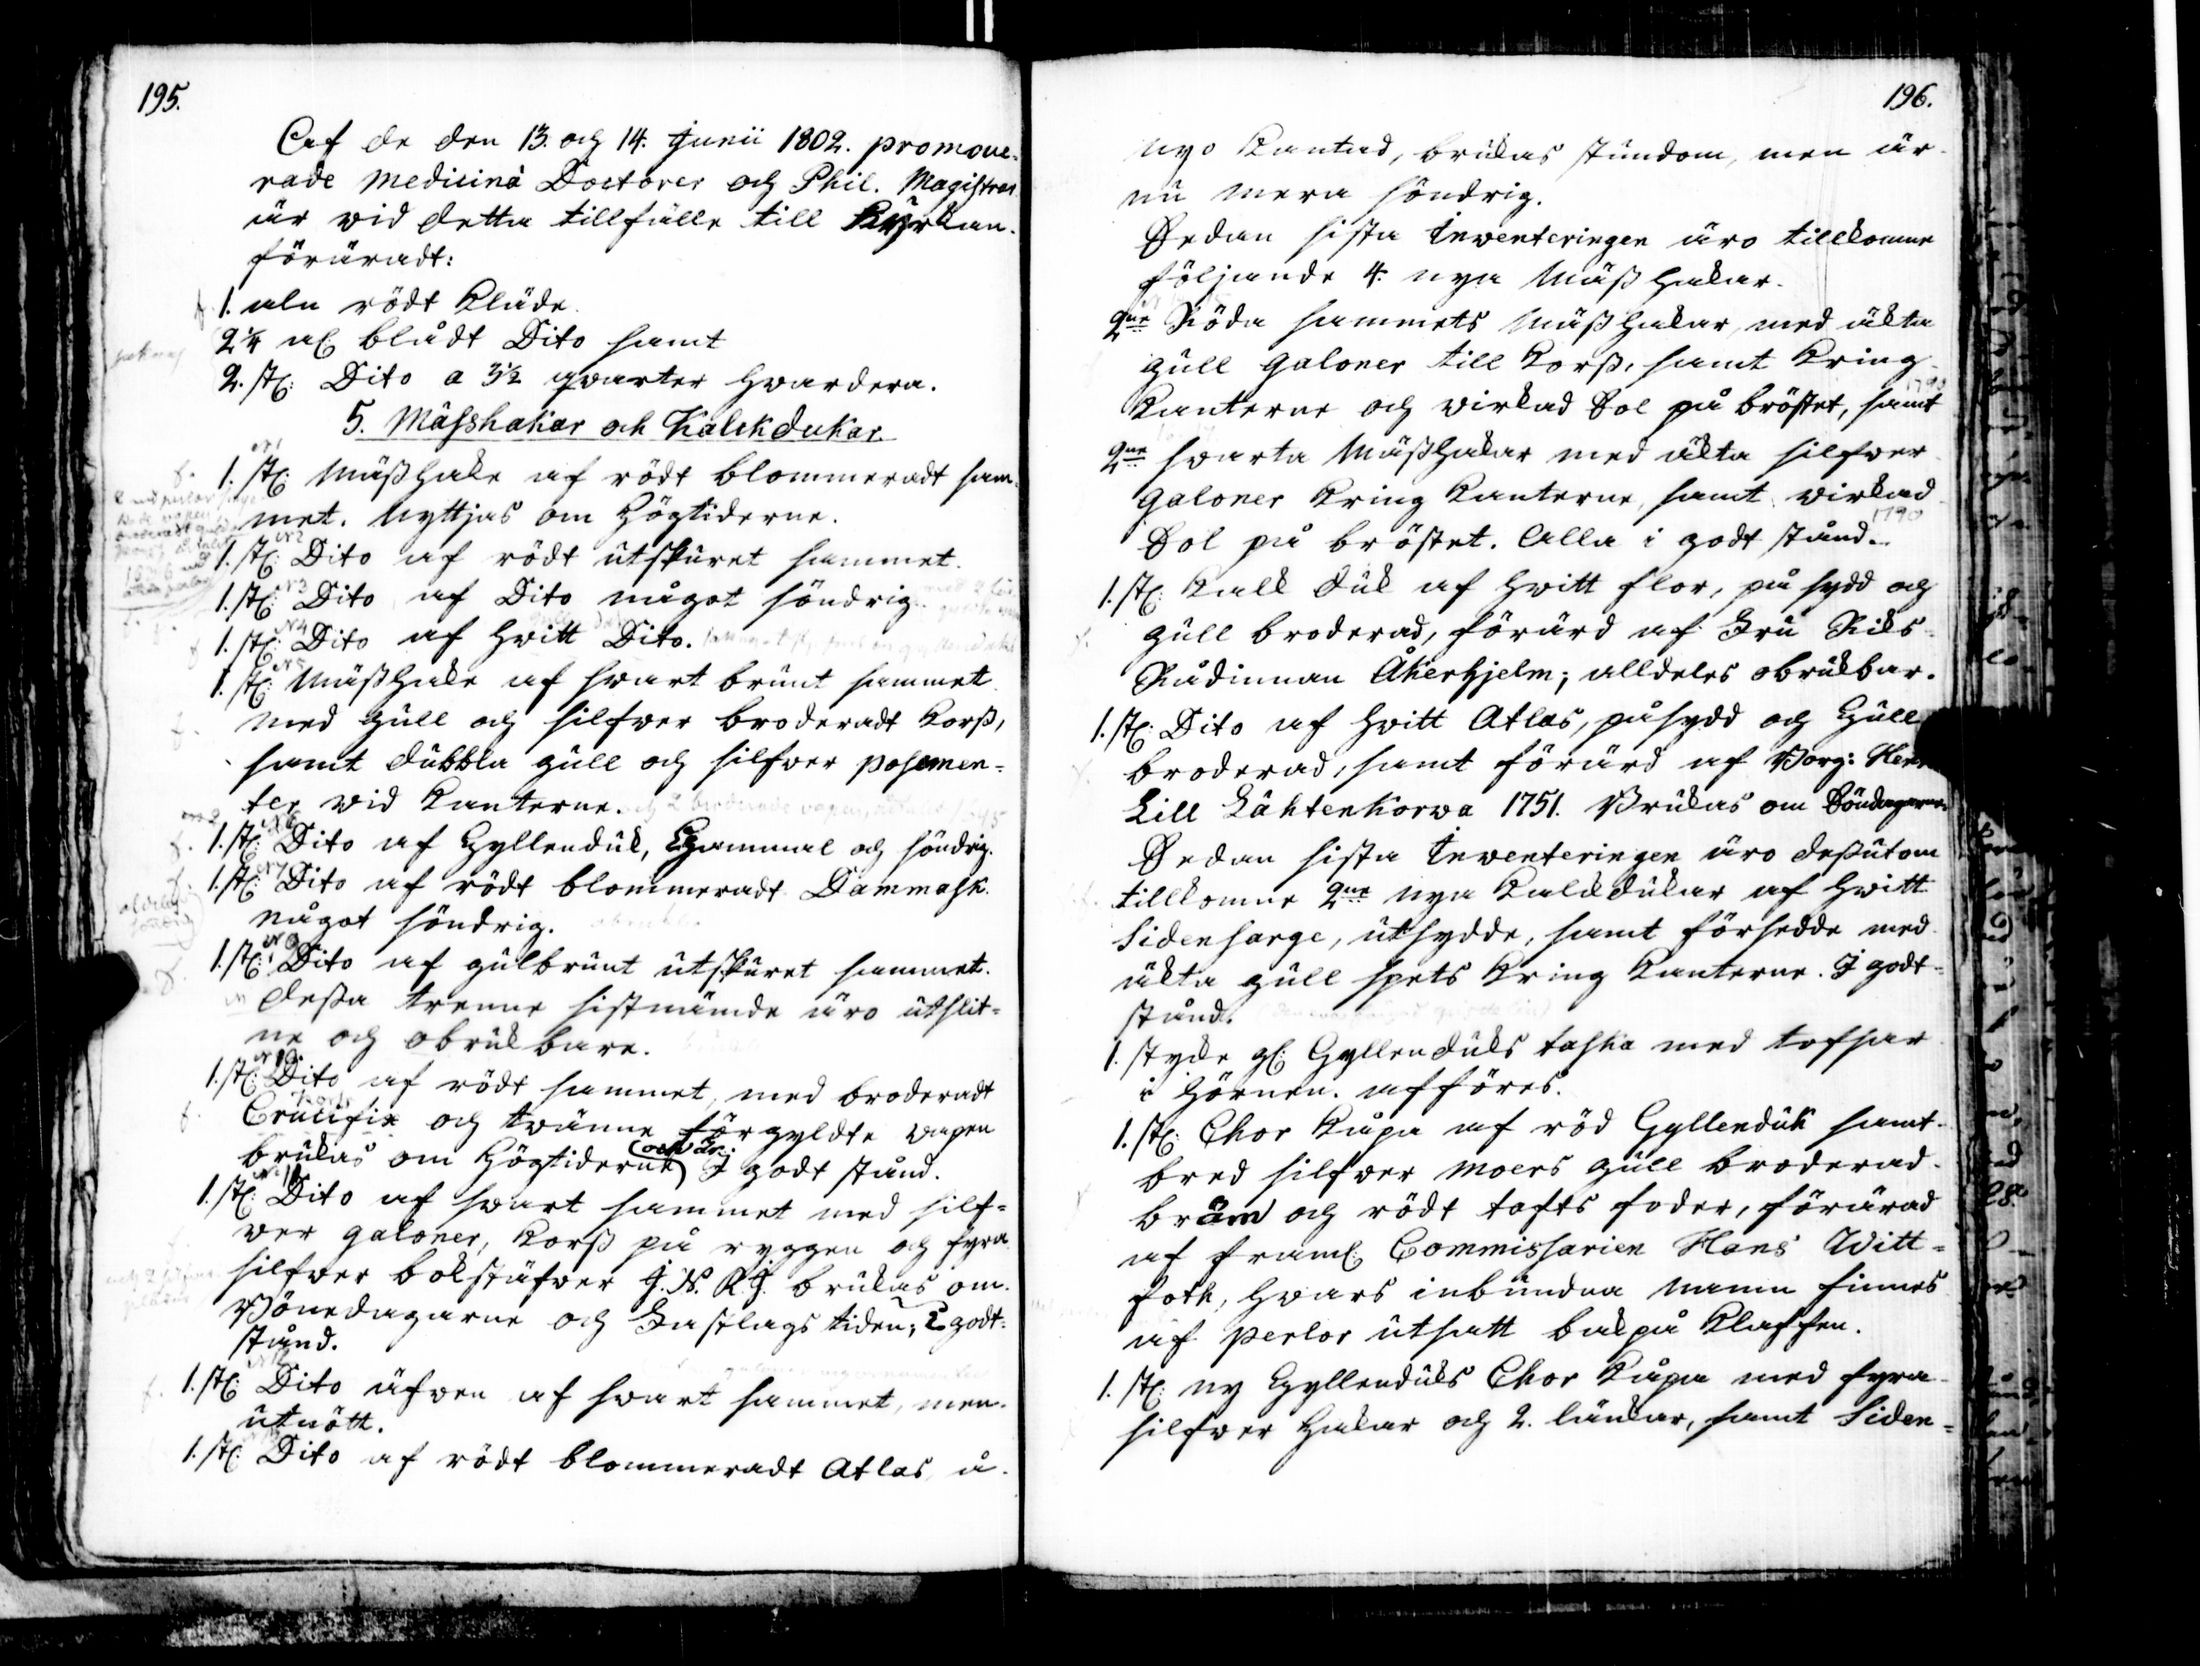 195.
Af de den 13. och 14. Junii 1802. promove-
rade Medicinä Doctorer och Phil. Magistrar
är vid detta tillfälle till Kyrkan
föräradt:
1. aln rödt Kläde.
2 1/4 al: blådt Dito samt
2. st: Dito a 3 1/2 qvarter hvardera.
5. Mässhakar och Kalckdukar.
N1
1. st: Mäßhake af rödt blommeradt sam-
met. Nyttjas om Högtiderne.
N2
1. st: Dito af rödt utskuret sammet.
N3
1. st: Dito af Dito något söndrig.
N4
1. st: Dito af hvitt Dito.
N5
1. st: Mäßhake af svart brunt sammet
med gull och silfver broderadt Korß,
samt dubbla gull och silfver posemen-
ter vid Kanterne.
N6
1. st: Dito af Gyllenduk, Gammal och söndrig.
N7
1. st: Dito af rödt blommeradt Dammask.
något söndrig.
N9
1. st: Dito af gulbrunt utskuret sammet.
deßa trenne sistnämde äro utslit-
ne och obrukbare.
N10.
1. st: Dito af rödt sammet, med broderadt
Crucifix och tvänne förgyldte vapen
brukas om Högtiderne och är. I godt stånd.
N11
1. st: Dito af svart sammet med silf-
ver galoner, Korß på ryggen och fyra
silfver bokstäfver J. N. R. J. brukas om
Bönedagarne och Fastlags tiden; I godt
stånd.
N12
1. st: Dito äfven af svart sammet, men
utnött.
1. st: Dito af rödt blommeradt Atlas, å
196.
nyo Kantad, brukas stundom, men är
nu mera söndrig.
Sedan sista Inventeringen äro tillkomne
följande 4. nya Mäß hakar.
2ne Röda sammets Mäßhakar, med äkta
gull galoner till Korß, samt Kring
Kanterne och virkad Sol på bröstet, samt
1790
2ne svarta Mäßhakar med äkta silfver
galoner Kring Kanterne, samt virkad
Sol på bröstet. Alla i godt stånd.
1790
1. st: Kalk duk af hvitt flor, på sydd och
gull broderad, förärd af Fru Riks-
Rådinnan Åkerhjelm; alldeles obrukbar.
1. st: Dito af hvitt Atlas, påsydd och Gull
broderad, samt förärd af Borg:
Lill Lähtenkorwa 1751. Brukas om Söndagarne.
Sedan sista Inventeringen äro deßutom
tillkomne 2ne nya Kalkdukar af hvitt
Sidensarge, utsydde, samt försedde med
äkta gull spets Kring Kanterne. I godt
stånd.
1. stycke gl: Gyllenduks taska med tofsar
i hörnen. afföres.
1. st: Chor Kåpa af röd Gyllenduk samt
bred silfver moers gull broderad
bräm och rödt tafts foder, förärad
af framl: Commissarien Hans Witt-
foth, hvars inbundna namn finnes
af perlor utsatt bakpå Klaffen.
1. st: ny Gyllenduks Chor Kåpa med fyra
silfver Hakar och 2. länkar, samt Siden-